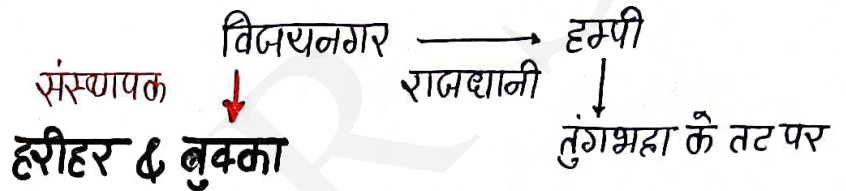 विजयनगर ⟶ हम्पी
संस्थापक ↓ राजधानी ↓
हरीहर & बुक्का तुंगभद्रा के तट पर